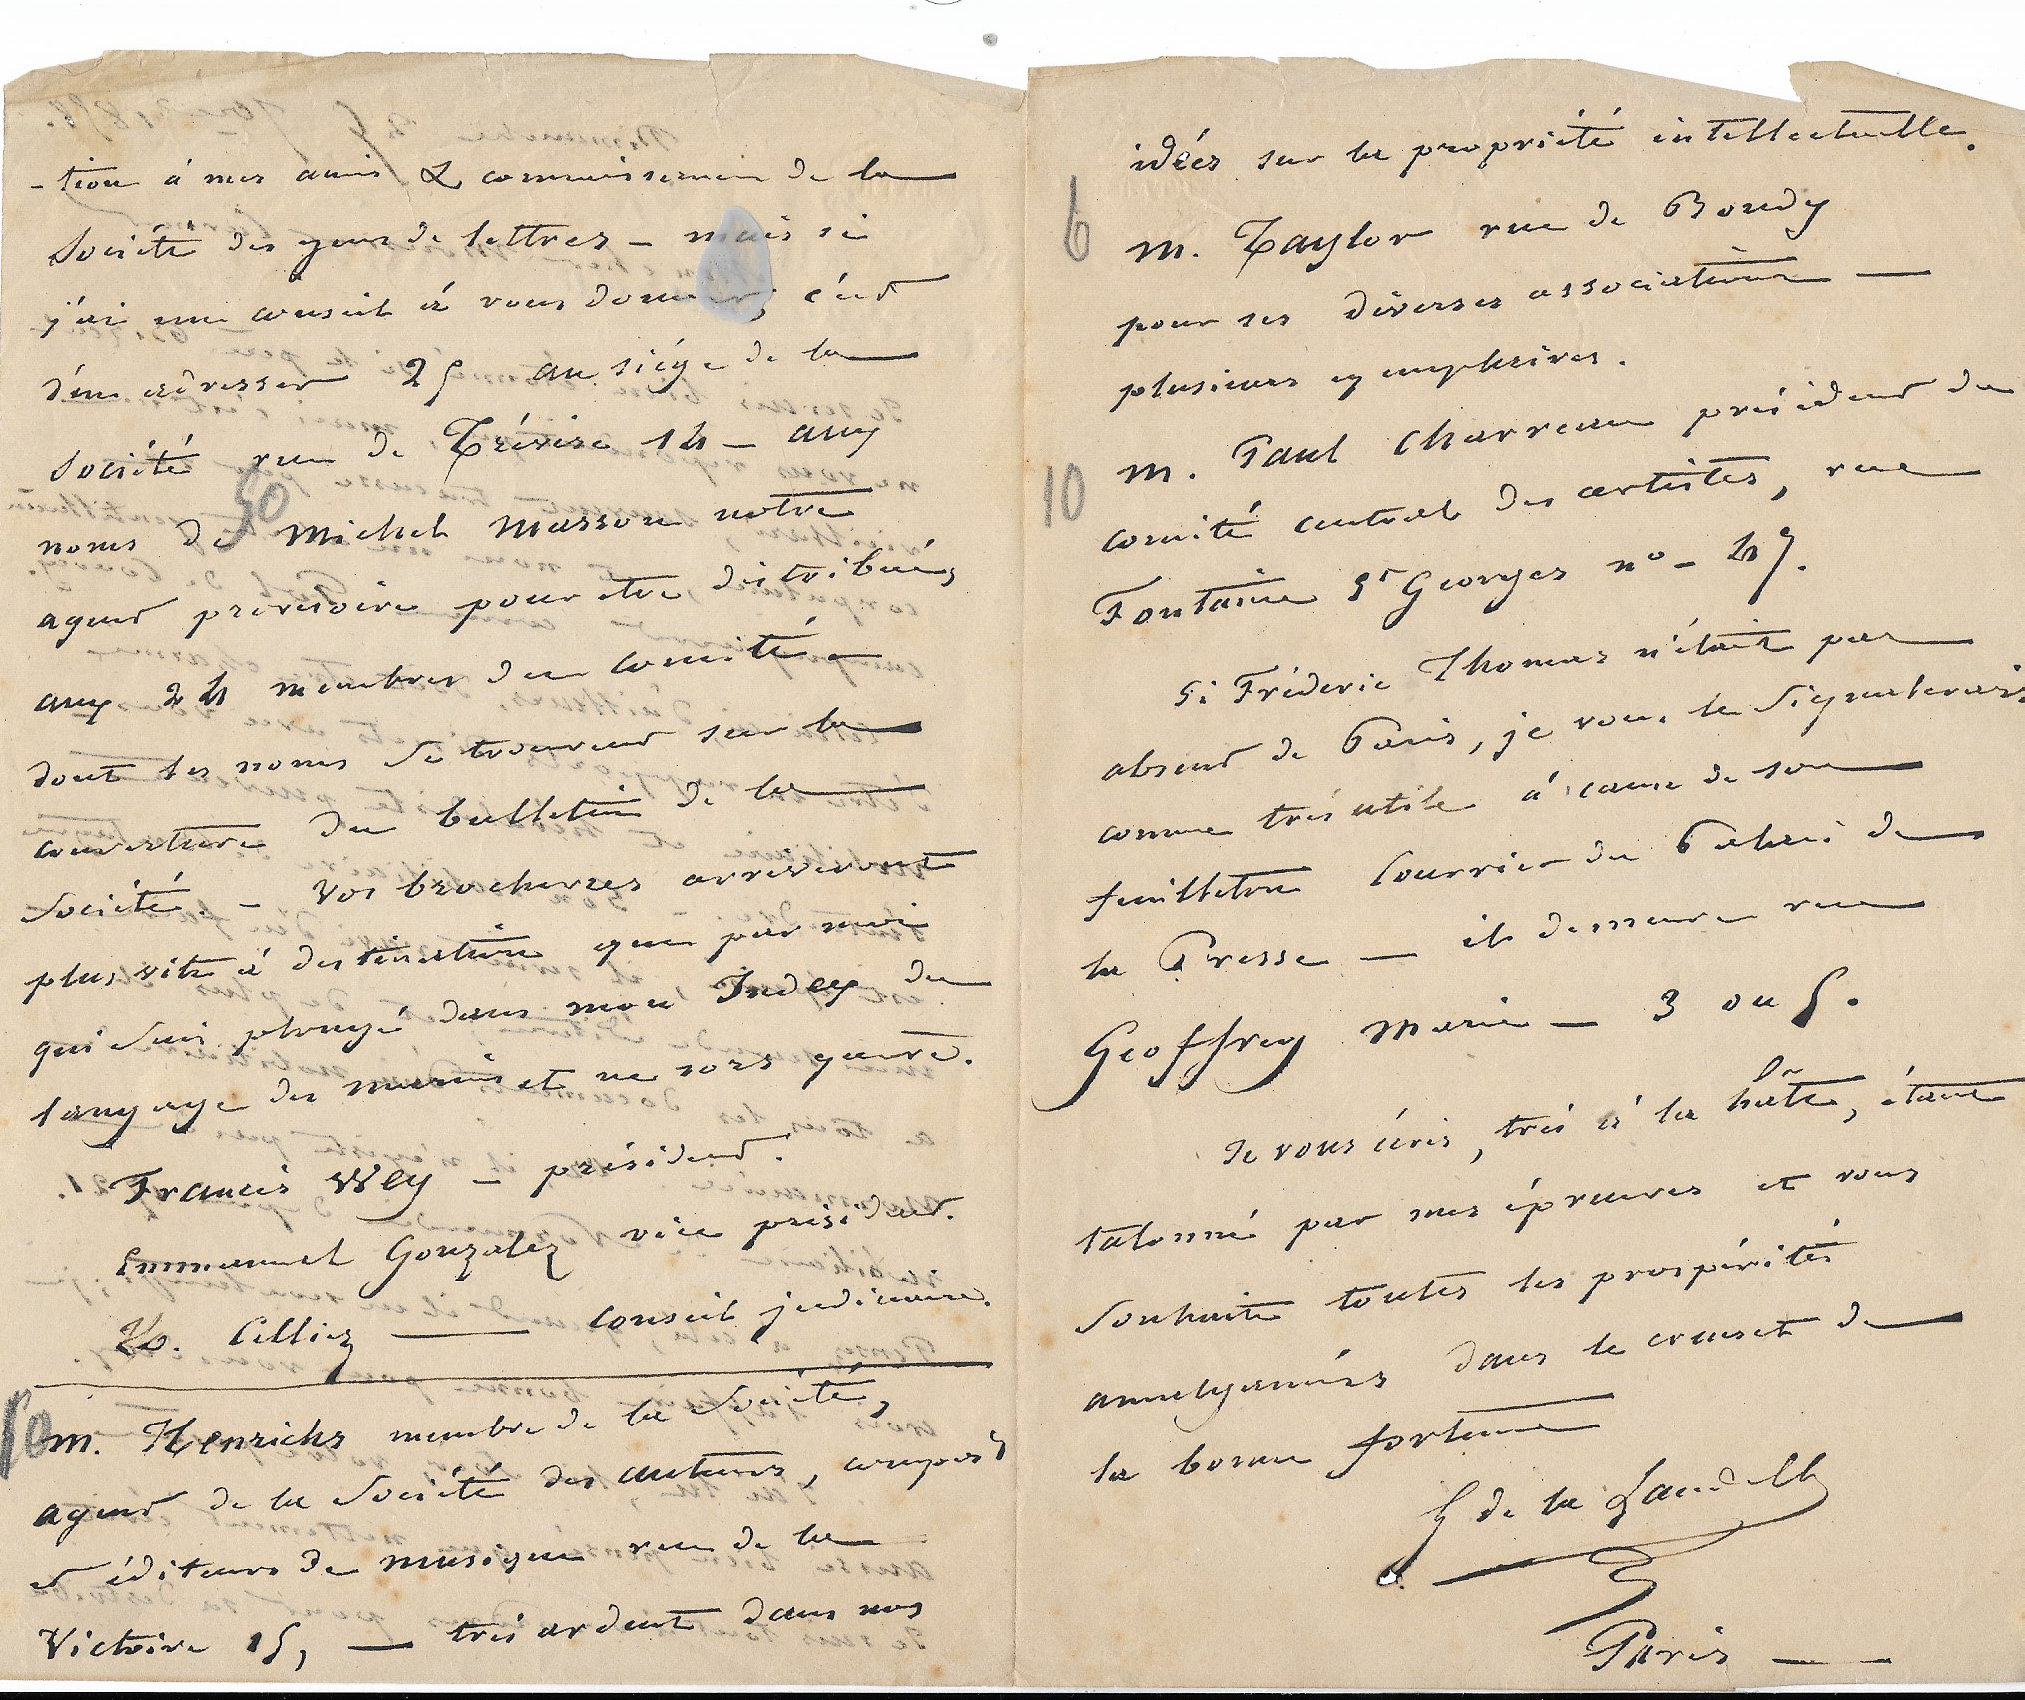 -tion à mes amis & connaissances de la
Société des gens de lettres – mais si
j'ai un conseil à vous donner, c'est
d'en adresser 25 au siége de la
Société rue de Trévise 14 – aux
50
noms de Michel Masson notre
agent provisoire pour être distribués
aux 24 membres du comité –
dont les noms se trouvent sur la
couverture du bulletin de la
Société. – Vos brochures arriveront
plus vite à destination que par moi
qui suis plongé dans mon Index du
langage des marins et ne sors guère.
Francis Wey – président.
Emmanuel Gonzalez vice président.
Celliez — conseil judiciaire.
10
M. Henrichs membre de la Société,
agent de la Société des auteurs, compos
et éditeurs de musique rue de la
Victoire 15, — très ardent dans nos
idées sur la propriété intellectuelle.
6
M. Taylor rue de Bondy
pour ses diverses associations —
plusieurs exemplaires.
10
M. Paul Charreau président du
comité central des artistes, rue
Fontaine St Georges n° – 47.
Si Fréderic Thomas n'était pas
absent de Paris, je vous le signalerais
comme très utile à cause de son
feuilleton Courrier du Palais de
la Presse — il demeure rue
Geoffroy Marie — 3 ou 5.
Je vous écris, très à la hâte, étant
talonné par mes épreuves et vous
souhaite toutes les prospérités
amalgamées dans le creuset de
la bonne fortune
G de la Landelle
Paris —